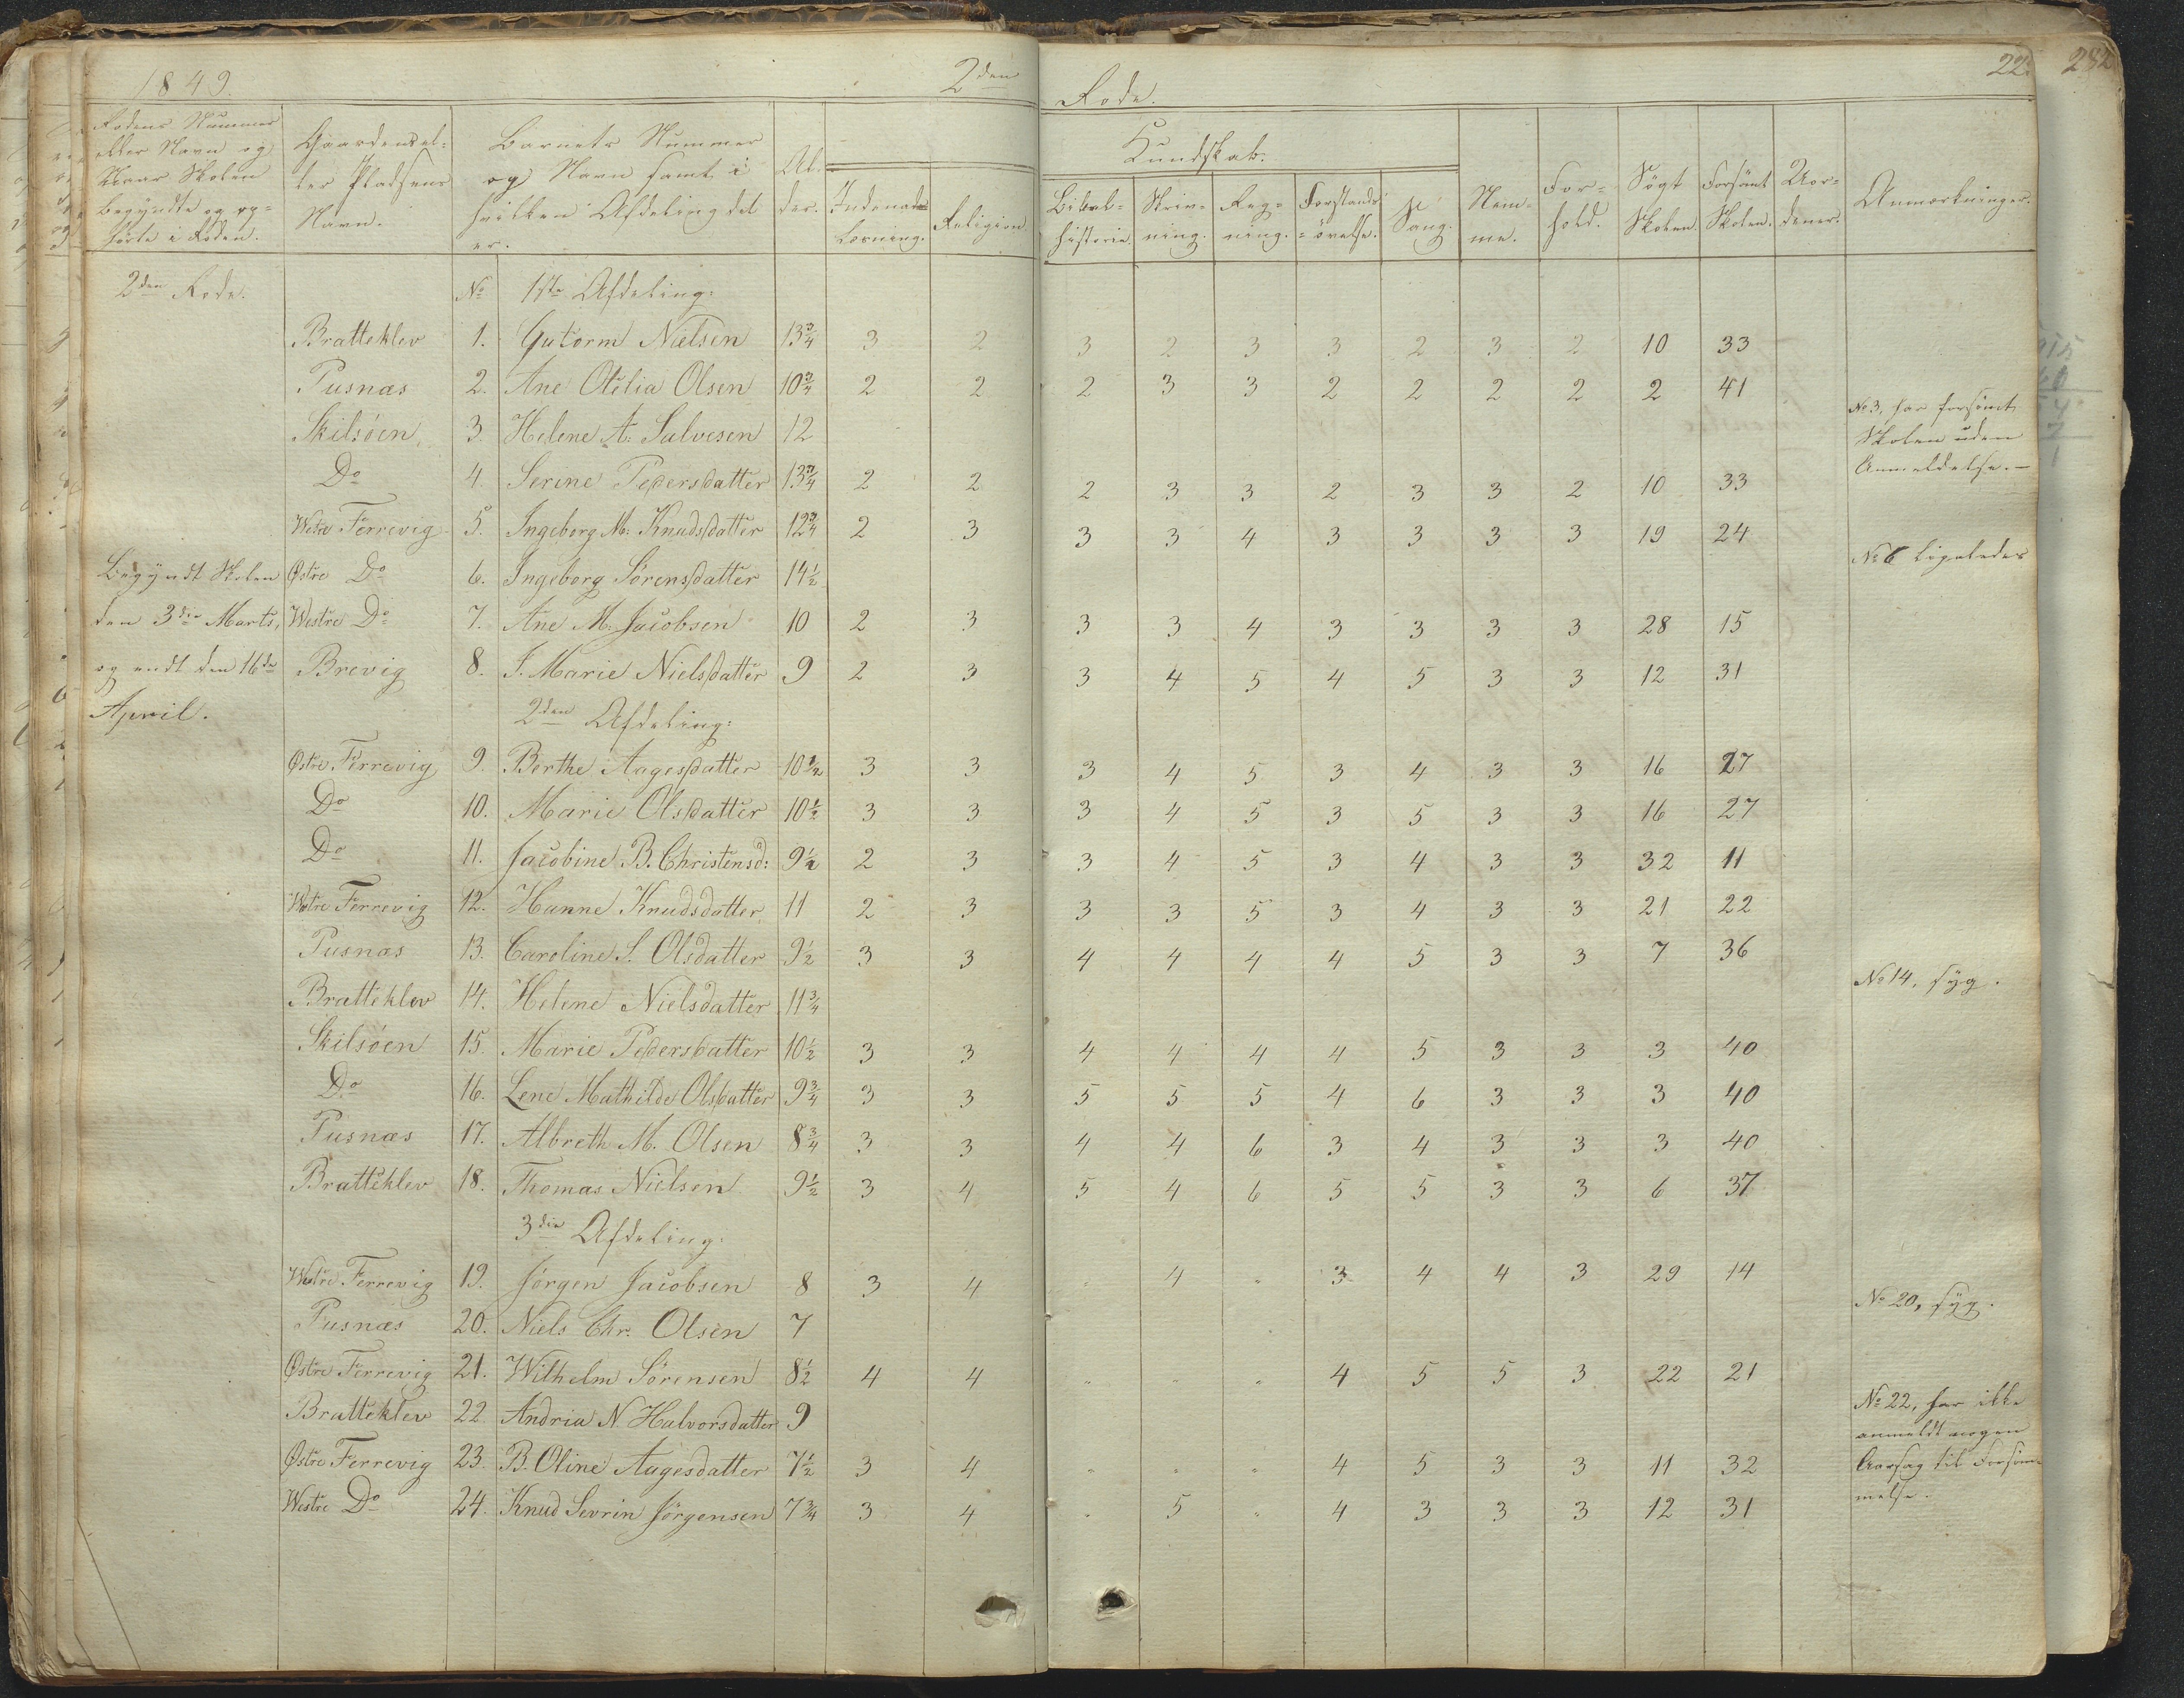 1849. 2den Rode. 22. 282
Rodens Nummer eller Navn og Naar Skolen begyndte og op=hørte i Roden. | Gaardens el=ler Pladsens Navn. | Barnets Nummer og Navn samt i hvilken Afdeling det er. | Al=der. | Indenads Læsning. | Religion. | Kundskab. | Bibel=historie. | Skriv=ning. | Reg=ning. | Forstands=øvelse. | Sang. | Nem=me. | For=hold. | Søgt Skolen. | Forsömt Skolen. | Uor=dener. | Anmærkninger.
2den Rode. No 1ste Afdeling:
Bratteklev 1. Gutorm Nielsen 13 3/4 3 2 3 2 3 3 2 3 2 10 33
Pusnæs 2. Ane Otelia Olsen 10 3/4 2 2 2 3 3 2 2 2 2 2 41
Skilsöen 3. Helene A. Salvesen 12 No 3, har forsömt Skolen uden Anmeldelse.—
Do 4. Serine Pedersdatter 13 3/4 2 2 2 3 3 2 3 3 2 10 33
Westre Færrevig 5. Ingeborg M. Knudsdatter 12 3/4 2 3 3 3 4 3 3 3 3 19 24
Begyndt Skolen Østre Do 6. Ingeborg Sörensdatter 14 1/2 No 6 ligeledes
den 3die Marts, Westre Do 7. Ane M. Jacobsen 10 2 3 3 3 4 3 3 3 3 28 15
og endt den 16de Brevig 8. J. Marie Nielsdatter 9 2 3 3 4 5 4 5 3 3 12 31
April. 2den Afdeling:
Østre Færrevig 9. Berthe Aagesdatter 10 1/2 3 3 3 4 5 3 4 3 3 16 27
Do 10. Marie Olsdatter 10 1/2 3 3 3 4 5 3 5 3 3 16 27
Do 11. Jacobine B. Christensd: 9 1/2 2 3 3 4 5 3 4 3 3 32 11
Westre Færrevig 12. Hanne Knudsdatter 11 2 3 3 3 5 3 4 3 3 21 22
Pusnæs 13. Caroline S. Olsdatter 9 1/2 3 3 4 4 4 4 5 3 3 7 36
Bratteklev 14. Helene Nielsdatter 11 3/4 No 14, syg.
Skilsöen 15. Marie Pedersdatter 10 1/2 3 3 4 4 4 4 5 3 3 3 40
Do 16. Lene Mathilde Olsdatter 9 3/4 3 3 5 5 5 4 6 3 3 3 40
Pusnæs 17. Albreth M. Olsen 8 3/4 3 3 4 4 6 3 4 3 3 3 40
Bratteklev 18. Thomas Nielsen 9 1/2 3 4 5 4 6 5 5 3 3 6 37
3die Afdeling:
Westre Færrevig 19. Jörgen Jacobsen 8 3 4 " 4 " 3 4 4 3 29 14
Pusnæs 20. Niels Chr. Olsen 7 No 20, syg.
Østre Færrevig 21. Wilhelm Sörensen 8 1/2 4 4 " " " 4 5 5 3 22 21
Bratteklev 22 Andria N. Halvorsdatter 9 No 22, har ikke anmeldt nogen Aarsag til Forsöm=melse.
Østre Færrevig 23. B. Oline Aagesdatter 7 1/2 3 4 " " " 4 5 3 3 11 32
Westre Do 24. Knud Sevrin Jörgensen 7 3/4 3 4 " 5 " 4 3 3 3 12 31